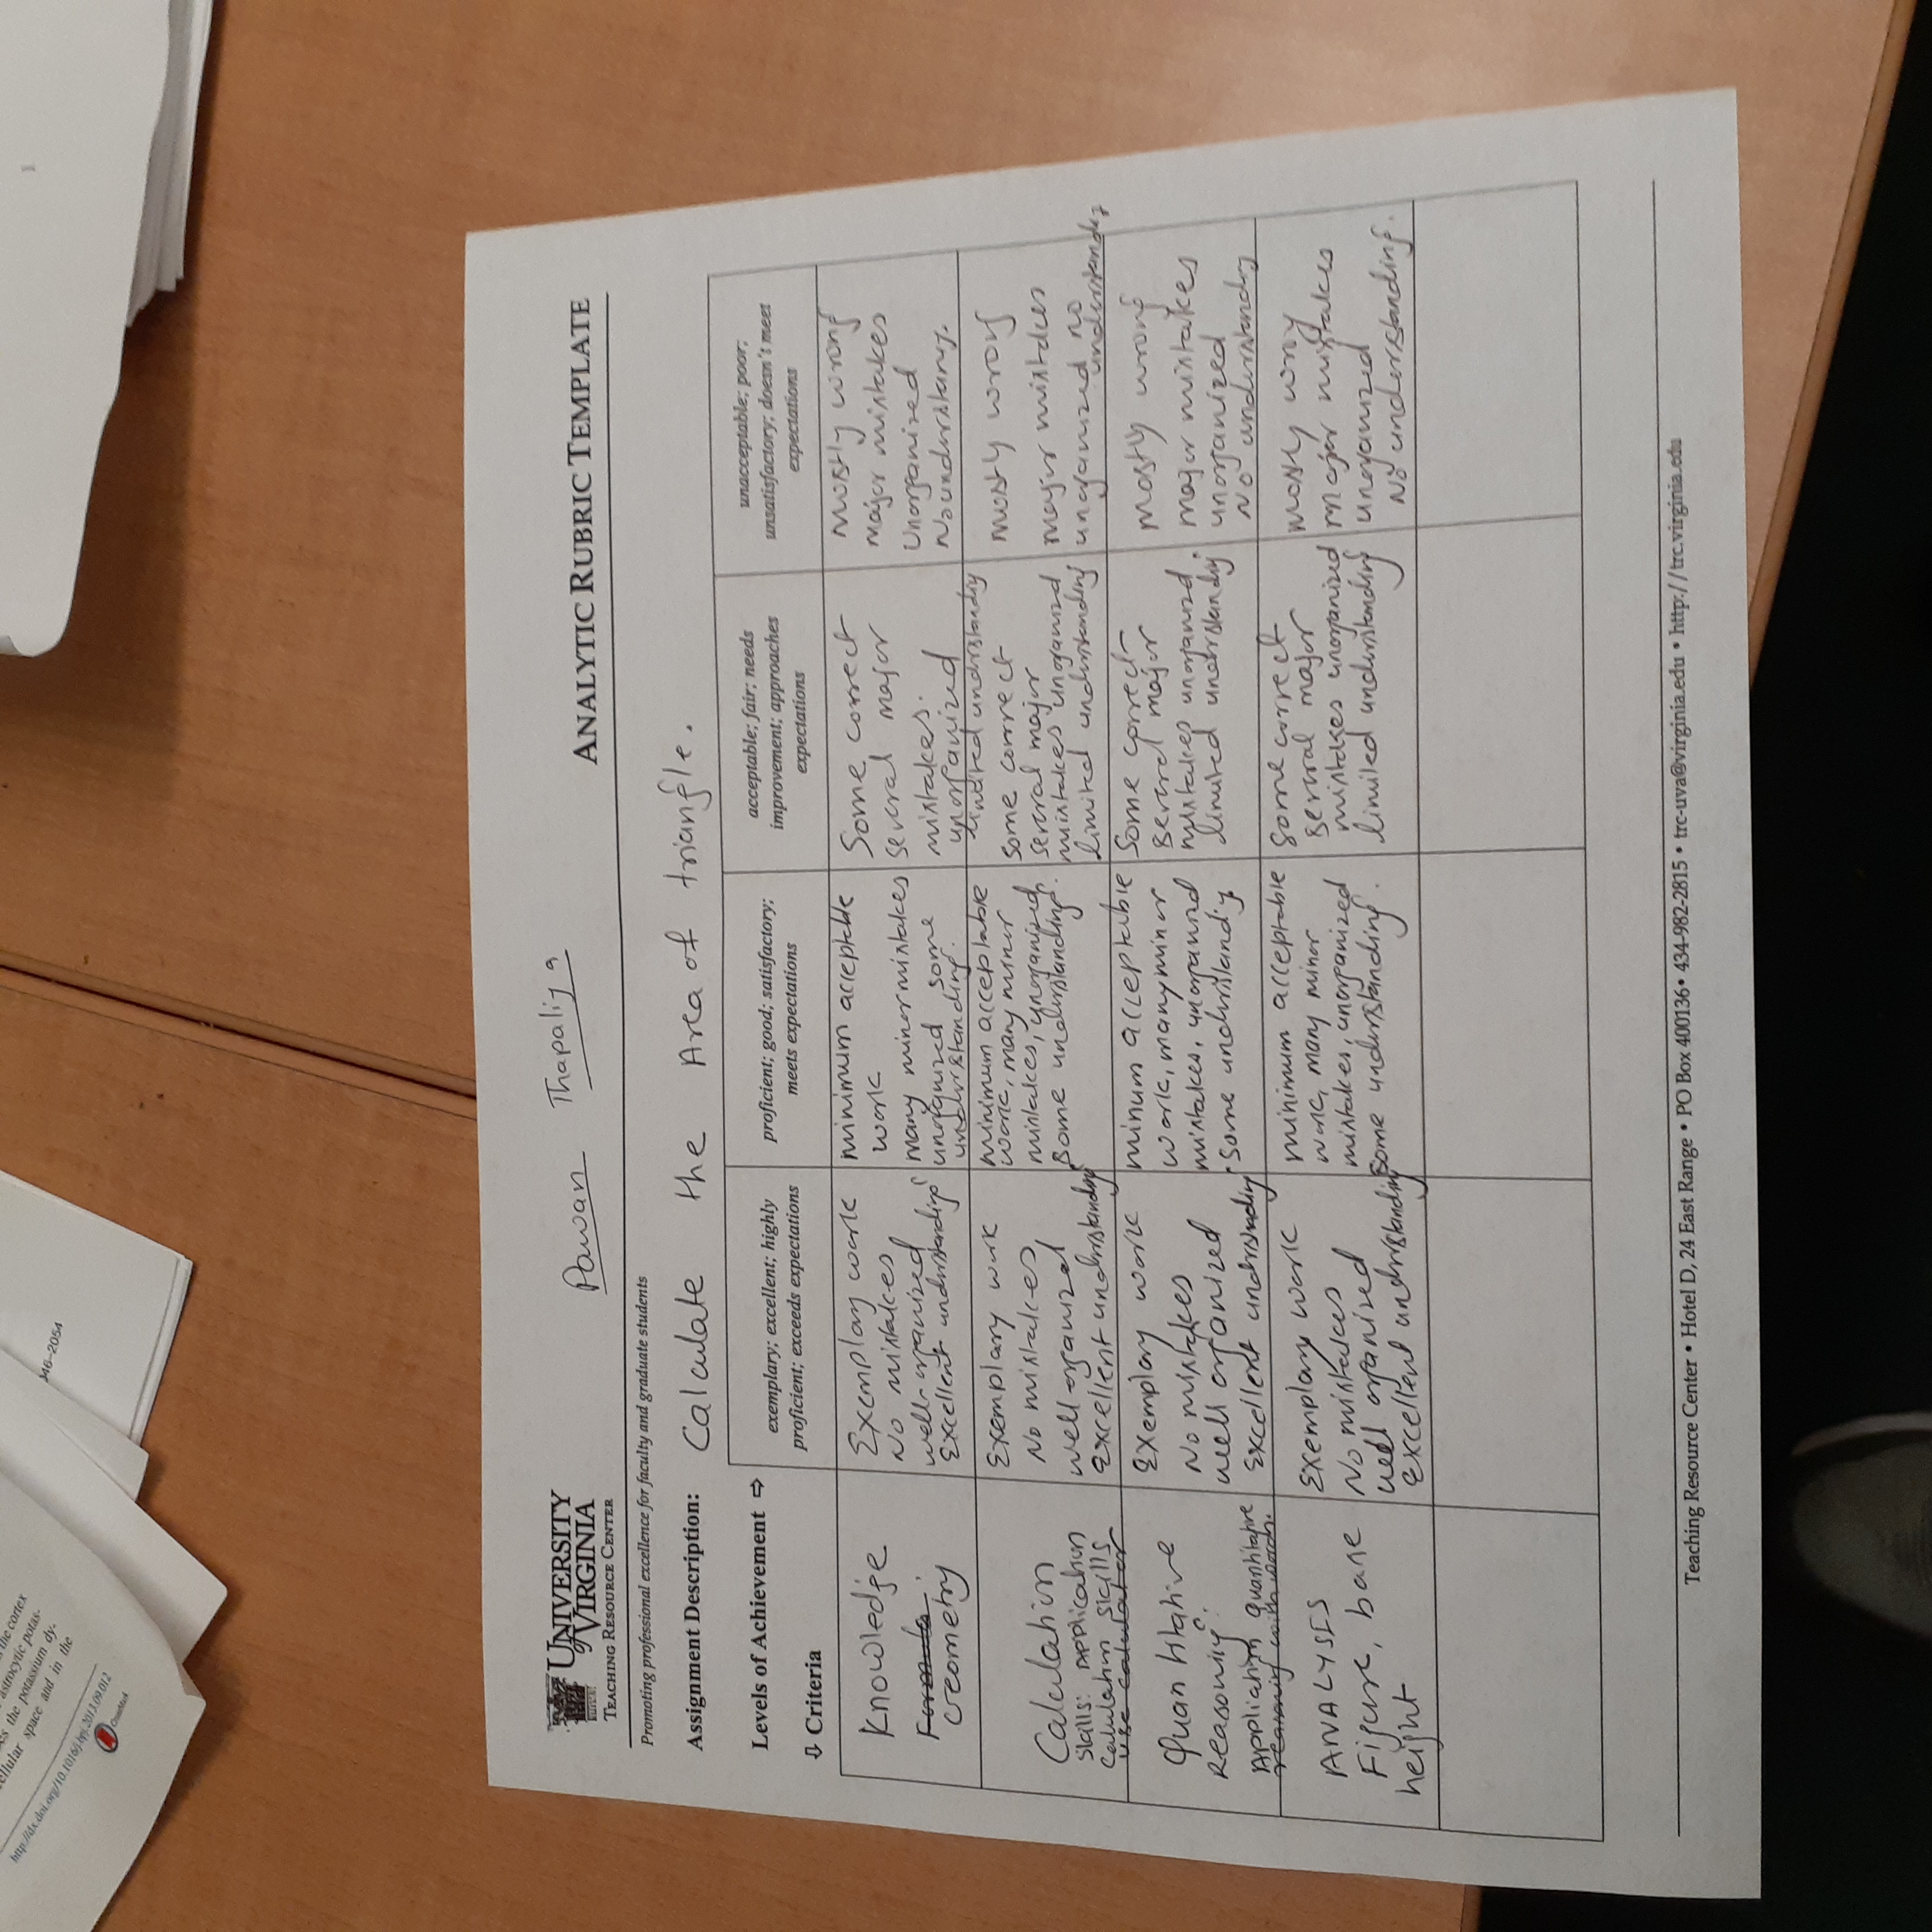 the cortex
astrocytic potas-
es the potassium dy-
cellular space and in the
http://dx.doi.org/10.1016/j.bpj.2013.09.012
CrossMark
046–2054
1
UNIVERSITY
of VIRGINIA
TEACHING RESOURCE CENTER
Pawan Thapaliya
ANALYTIC RUBRIC TEMPLATE
Promoting professional excellence for faculty and graduate students
Assignment Description: Calculate the Area of triangle.
Levels of Achievement ⇨
⇩ Criteria
exemplary; excellent; highly
proficient; exceeds expectations
proficient; good; satisfactory;
meets expectations
acceptable; fair; needs
improvement; approaches
expectations
unacceptable; poor;
unsatisfactory; doesn't meet
expectations
Knowledge
Formula
Geometry
Exemplary work
No mistakes
well-organized
Excellent understanding
minimum acceptable
work
many minor mistakes
unorganized some
understanding.
Some correct
several major
mistakes.
unorganized
limited understandig
Mostly wrong
Major mistakes
Unorganized
No understandig.
Calculation
Skills: Application
Calulation skills
use calculator
Exemplary work
No mistakes
well organized
Excellent understanding
minimum acceptable
work, many minor
mistakes, unorganized
some understanding.
some correct
several major
mistakes unorganized
limited understanding
Mostly wrong
major mistakes
unorganized no
understanding
Quantitative
Reasoning:
Application quantitative
reasoning with words.
Exemplary work
No mistakes
well organized
Excellent understanding
minum acceptable
work, many minor
mistakes, unorganized
some understandig.
Some correct
several major
mistakes unorganized.
limited understandig
Mostly wrong
major mistakes
unorganized
No understanding
ANALYSES
Figure, base
height
Exemplary work
No mistakes
well organized
Excellent understanding
minimum acceptable
work, many minor
mistakes, unorganized
some understanding.
some correct
several major
mistakes unorganized
limited understanding
mostly wrong
major mistakes
unorganized
No understanding.
Teaching Resource Center • Hotel D, 24 East Range • PO Box 400136 • 434-982-2815 • trc-uva@virginia.edu • http://trc.virginia.edu